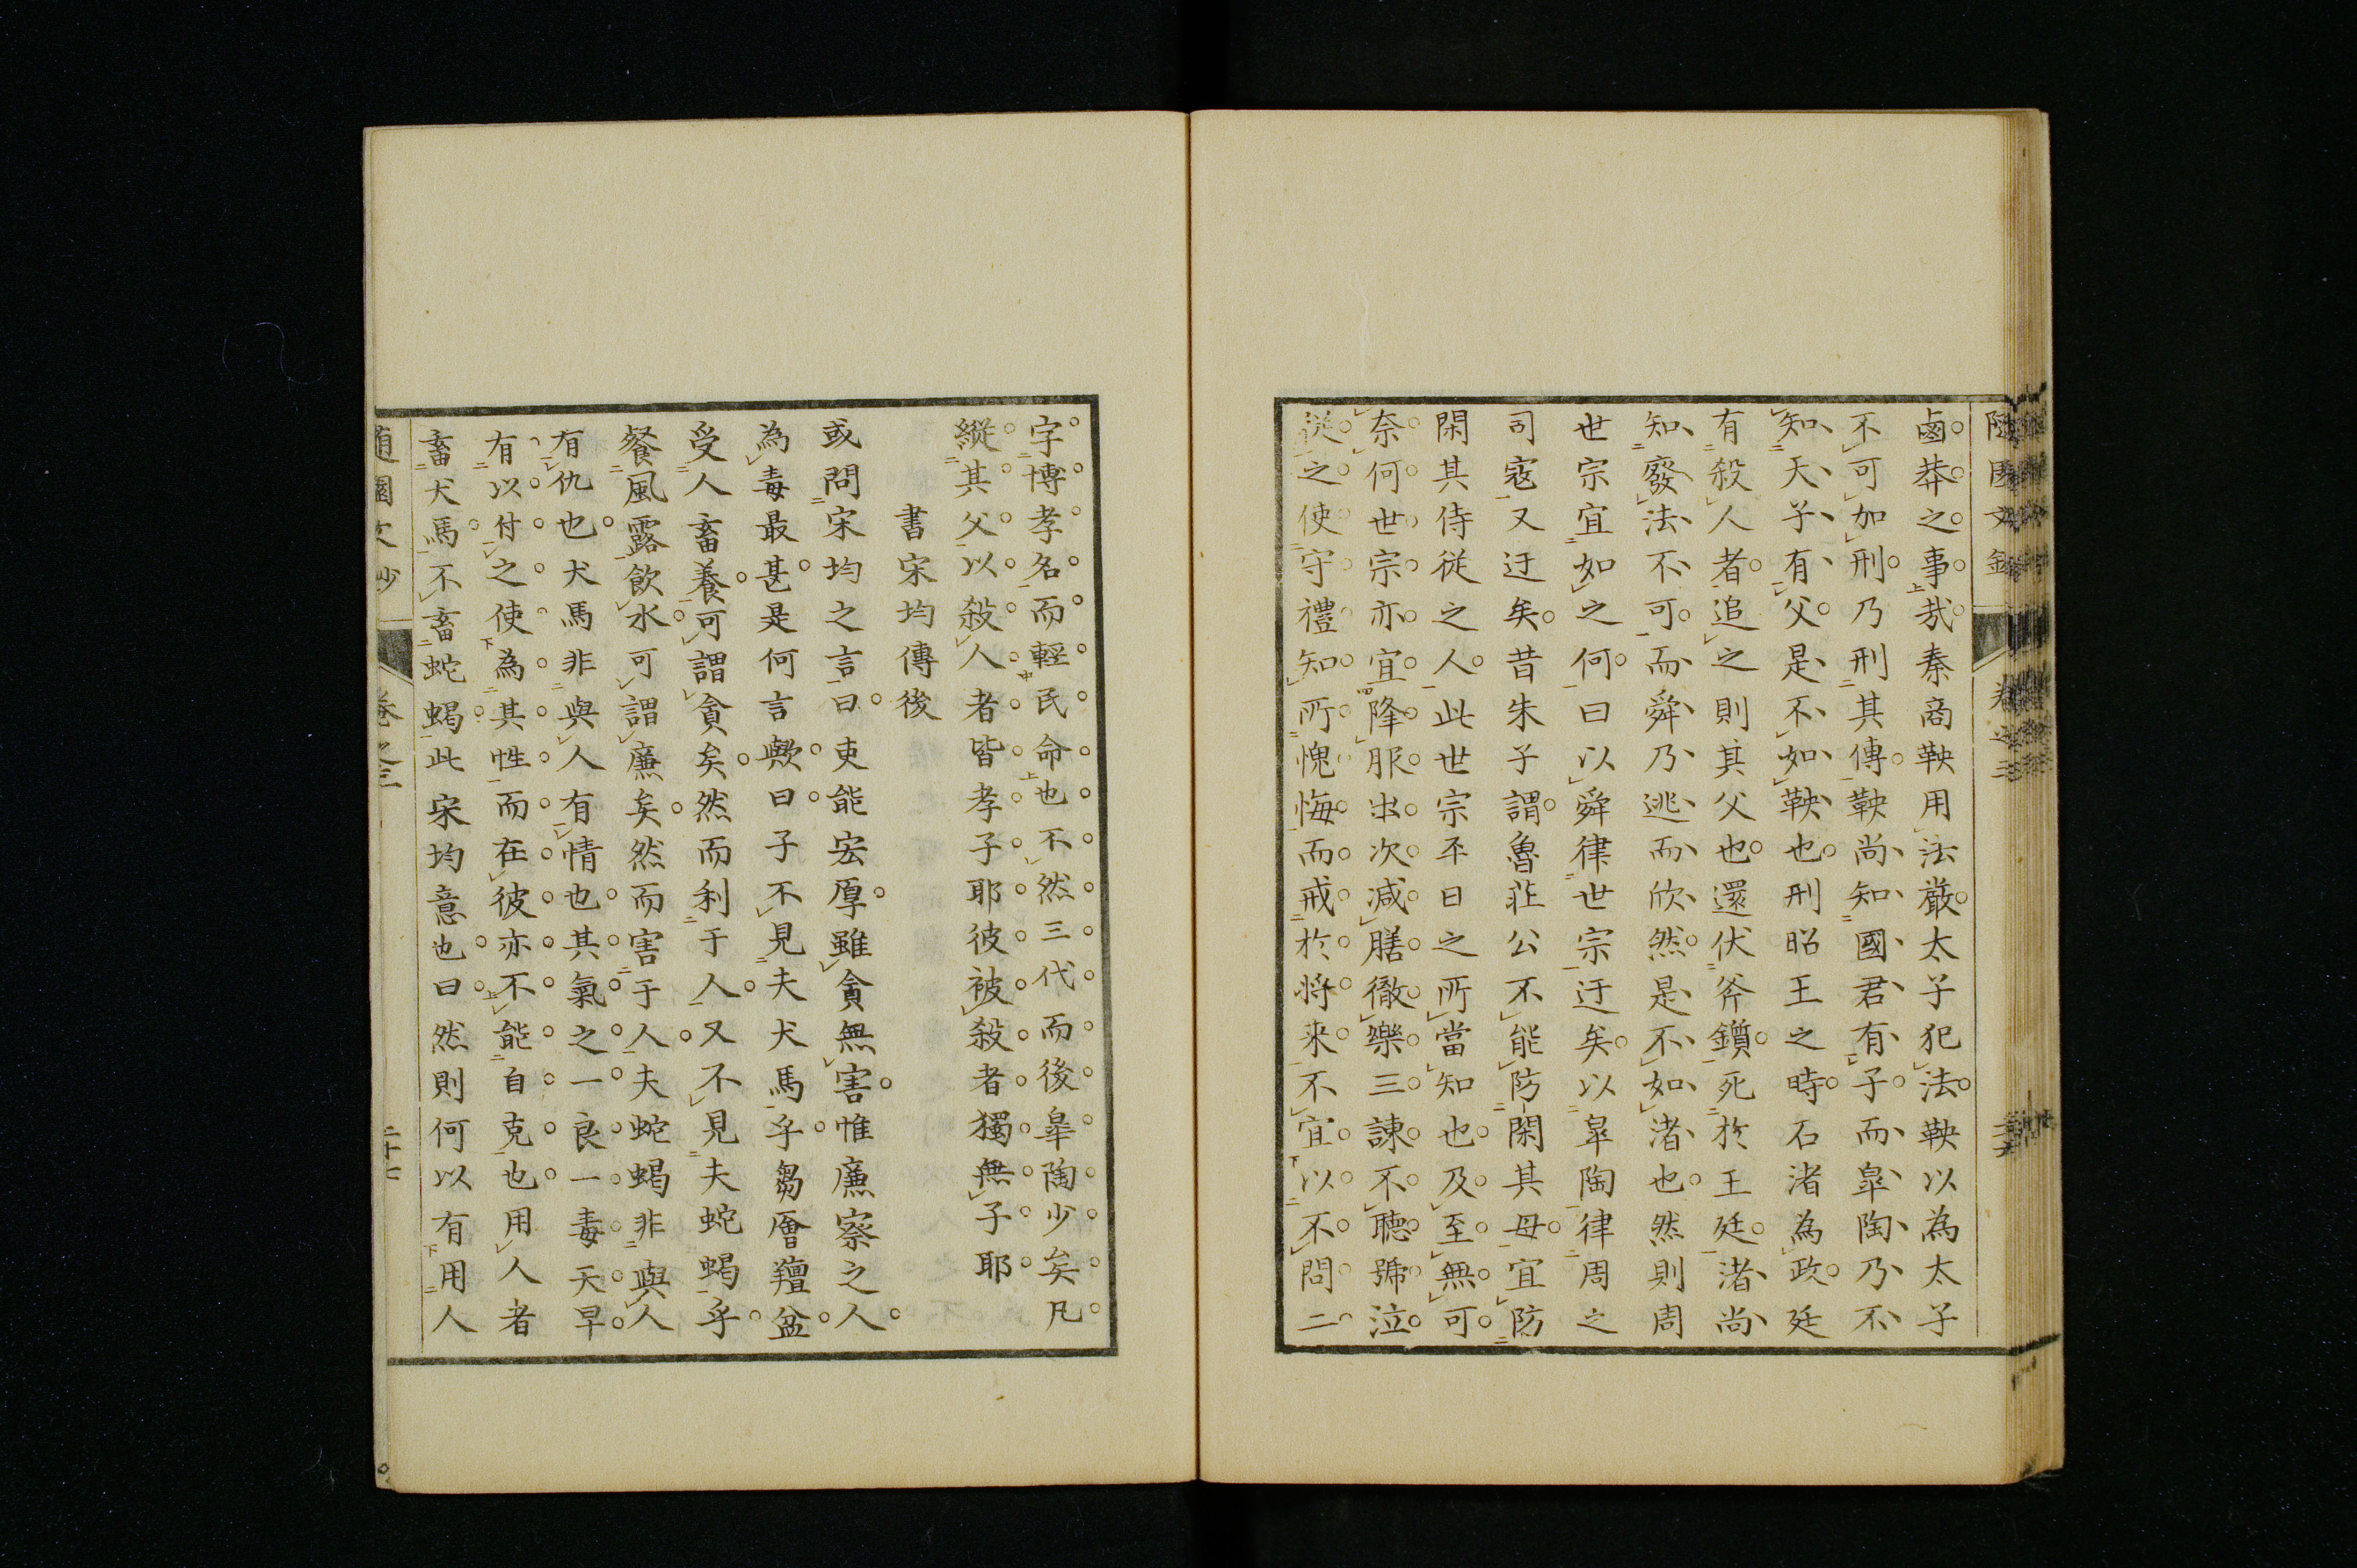 鹵莽之事哉秦商鞅用法嚴太子犯法鞅以為太子
不可加刑乃刑其傳鞅尚知國君有子而皐陶乃不
知天子有父是不如鞅也刑昭王之時石渚為政廷
有殺人者追之則其父也還伏斧鑕死於王廷渚尚
知廢法不可而舜乃逃而欣然是不如渚也然則周
世宗宜如之何曰以舜律世宗迂矣以皐陶律周之
司寇又迂矣昔朱子謂魯莊公不能防閑其母宜防
閑其侍從之人此世宗平日之所當知也及至無可
奈何世宗亦宜降服出次減膳徹樂三諫不聽號泣
從之使守禮知所愧悔而戒於將來不宜以不問二
字博孝名而輕民命也不然三代而後皐陶少矣凡
縱其父以殺人者皆孝子耶彼被殺者獨無子耶
書宋均傳後
或問宋均之言曰吏能宏厚雖貪無害惟廉察之人
為毒最甚是何言歟曰子不見夫犬馬乎芻𢊍羶盆
受人畜養可謂貪矣然而利于人又不見夫蛇蝎乎
餐風露飲水可謂廉矣然而害于人夫蛇蝎非與人
有仇也犬馬非與人有情也其氣之一良一毒天早
有以付之使為其性而在彼亦不能自克也用人者
畜犬馬不畜蛇蝎此宋均意也曰然則何以有用人
隨園文鈔 卷之三 二十七